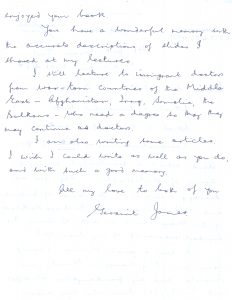 enjoyed your book.
You have a wonderful memory with
the accurate descriptions of slides I
showed at my lectures.
I still lecture to immigrant doctors
from war-torn countries of the Middle
East - Afghanistan, Iraq, Somalia, the
Balkans - who need a degree so they
may continue as doctors.
I am also writing some articles.
I wish I could write as well as you do,
and with such a good memory.
All my love to both of you
Jones